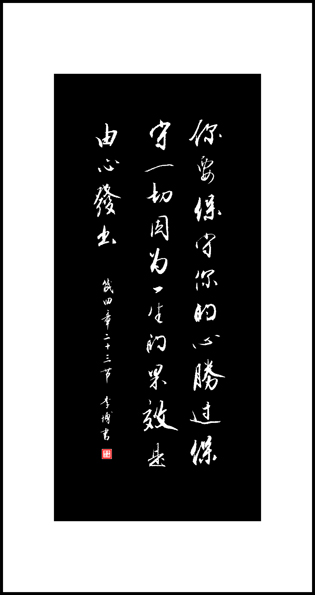 你要保守你的心勝過保
守一切因为一生的果效是
由心發出
箴四章二十三节 李博書